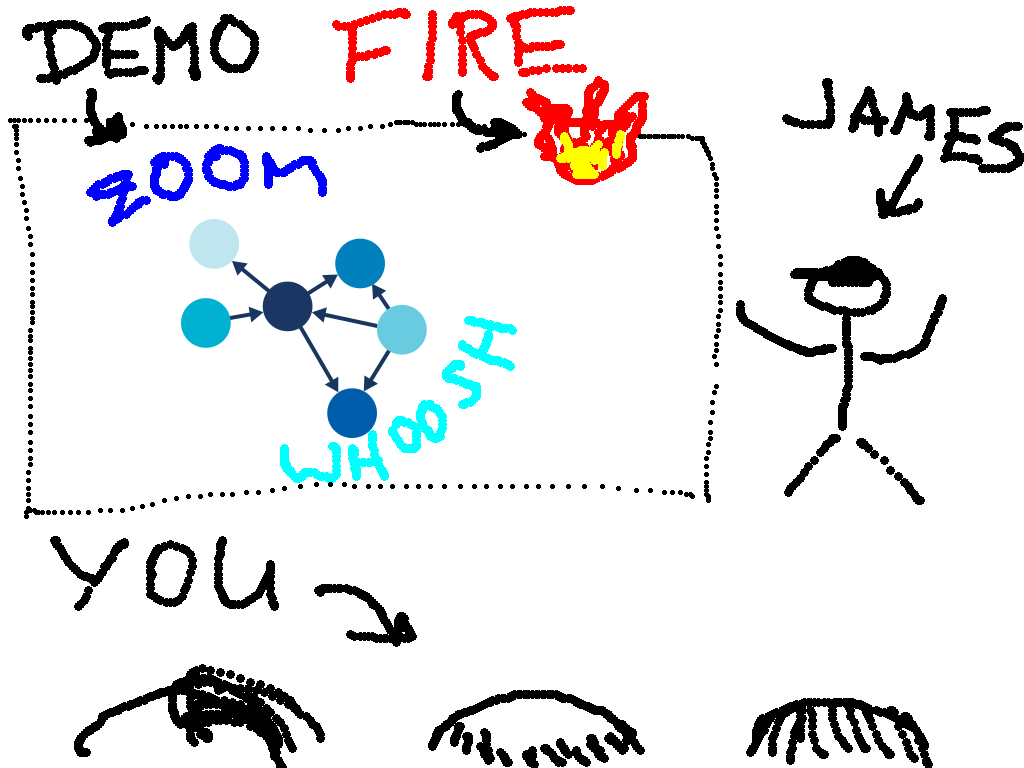 DEMO FIRE
JAMES
ZOOM
WHOOSH
YOU